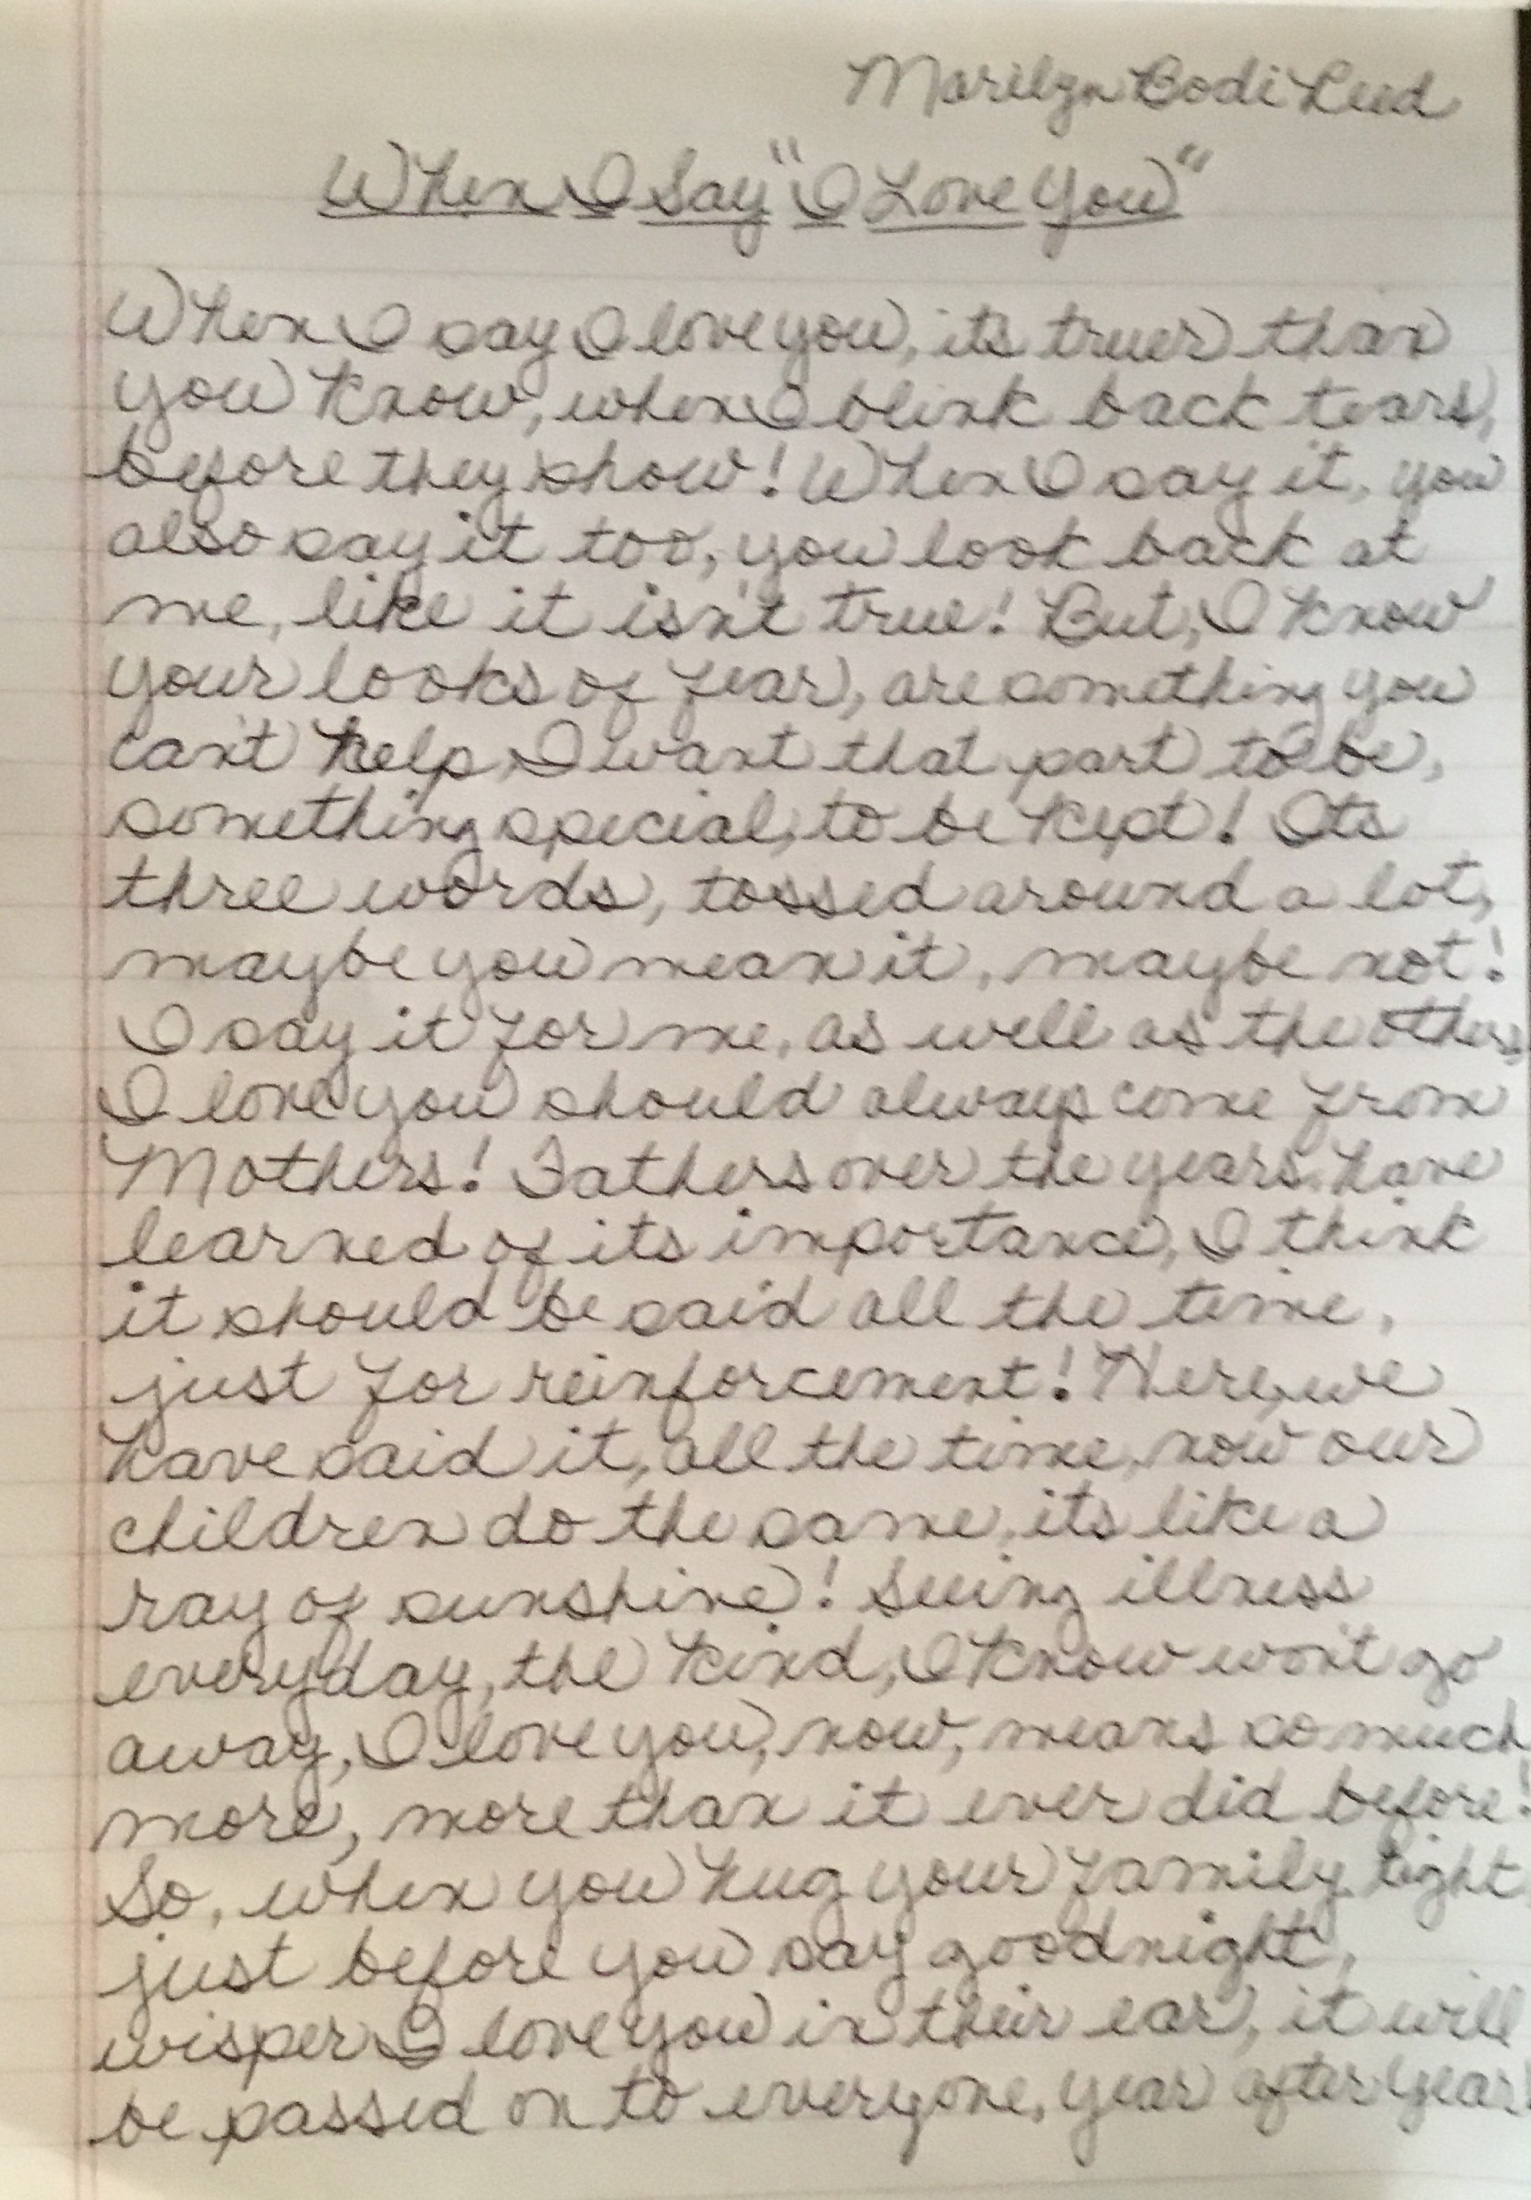 Marilyn Bodi Leed
When I Say "I Love You"
When I say I love you, it's truer than
you know, when I blink back tears,
before they show! When I say it, you
also say it too, you look back at
me, like it isn't true! But, I know
your looks of fear, are something you
can't help, I want that part to be,
something special, to be kept! Its
three words, tossed around a lot,
maybe you mean it, maybe not!
I say it for me, as well as the others,
I love you should always come from
Mothers! Fathers over the years, have
learned of its importance, I think
it should be said all the time,
just for reinforcement! Here, we
have said it, all the time, now our
children do the same, its like a
ray of sunshine! Seeing illness
everyday, the kind, I know won't go
away, I love you, now, means so much
more, more than it ever did before!
So, when you hug your family tight,
just before you say goodnight,
wisper I love you in their ear, it will
be passed on to everyone, year after year!